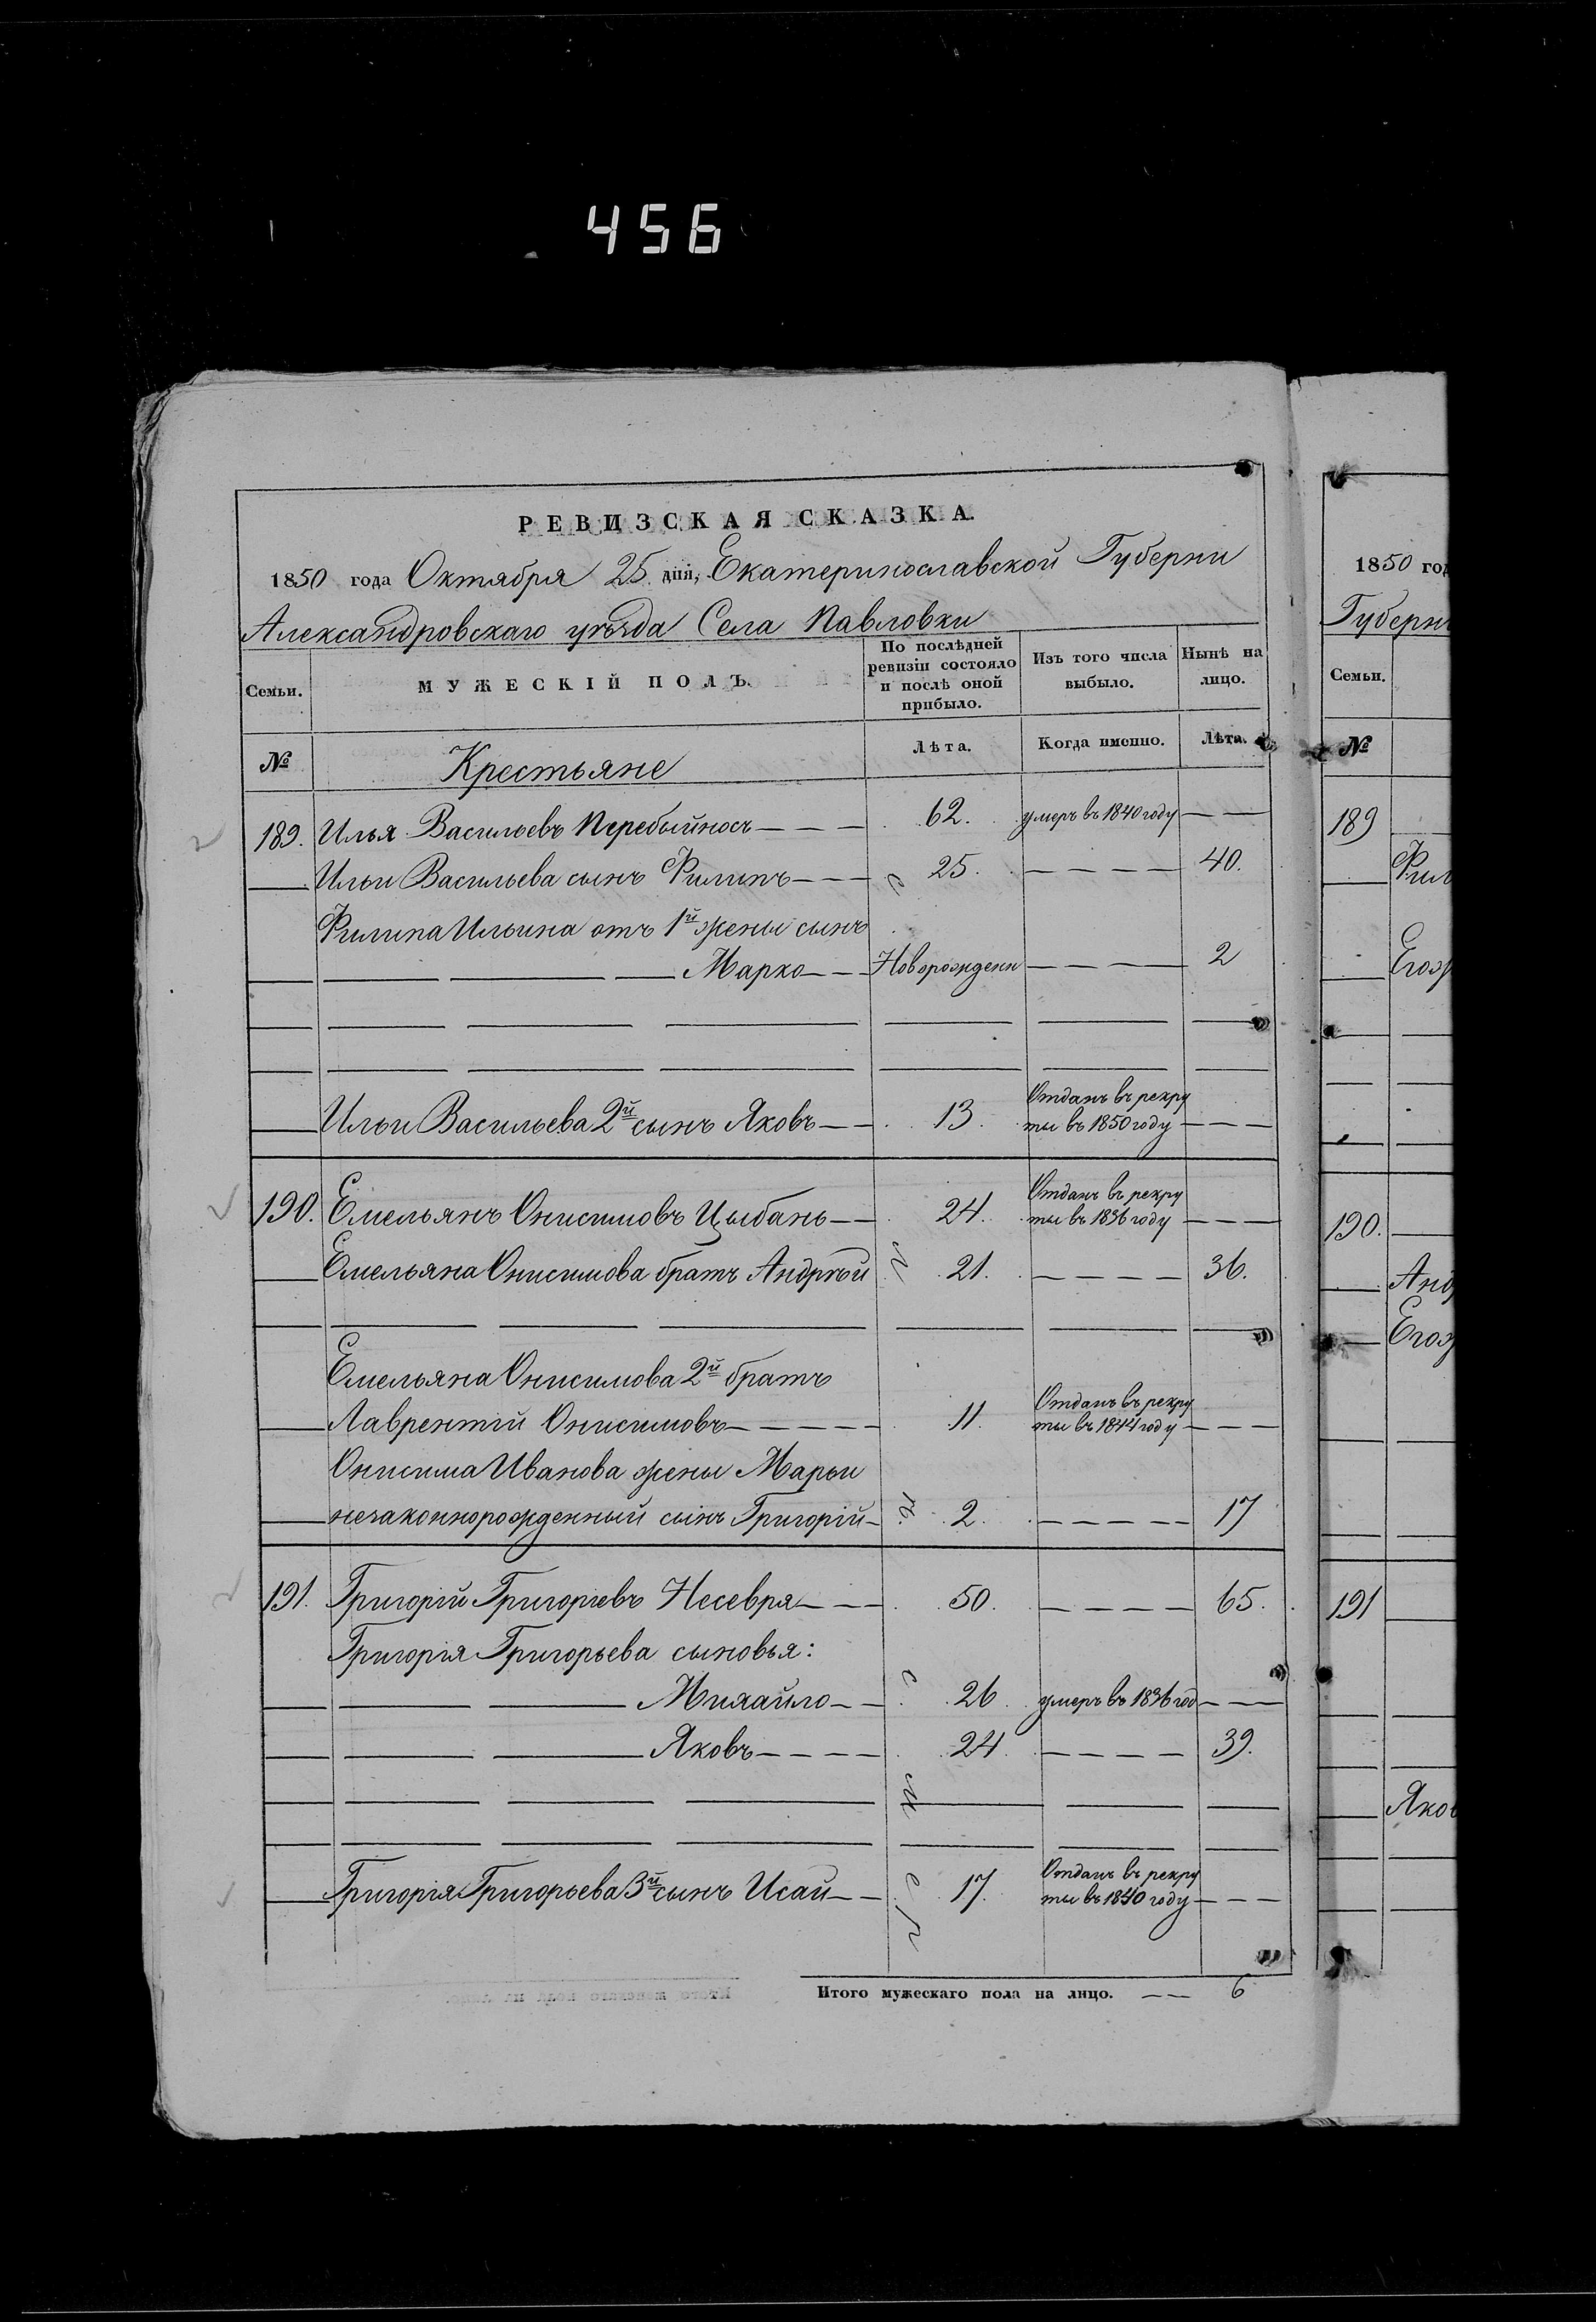 456
РЕВИЗСКАЯ СКАЗКА.
1850 года Октября 25 дня, Екатеринославской Губерни
Александровскаго уѣзда Села Павловки
Семьи.
МУЖЕСКІЙ ПОЛЪ.
По послѣдней ревизіи состояло и послѣ оной прибыло.
Изъ того числа выбыло.
Нынѣ на лицо.
№ Крестьяне Лѣта. Когда именно. Лѣта.
189. Илья Васильевъ Перебыйносъ 62. умеръ въ 1840 году
Ильи Васильева сынъ Филипъ 25. 40.
Филипа Ильина отъ 1й жены сынъ
Марко Новорожденн 2
Ильи Васильева 2й сынъ Яковъ 13. Отданъ въ рекру
ты въ 1850 году
190. Емельянъ Онисимовъ Цыбань 24. Отданъ въ рекру
ты въ 1836 году
Емельяна Онисимова братъ Андрѣй 21. 36.
Емельяна Онисимова 2й братъ
Лаврентій Онисимовъ 11. Отданъ въ рекру
ты въ 1844 году
Онисима Иванова жены Марьи
незаконнорожденный сынъ Григорій 2. 17
191. Григорій Григоріевъ Несевря 50. 65.
Григорія Григорьева сыновья:
Михайло 26. умеръ въ 1836 год
Яковъ 24. 39.
Григорія Григорьева 3й сынъ Исай 17. Отданъ въ рекру
ты въ 1840 году
Итого мужескаго пола на лицо. 6
1850 год
Губерн
Семьи.
№
189
Фил
Егож
190.
Анд
Егож
191
Яков